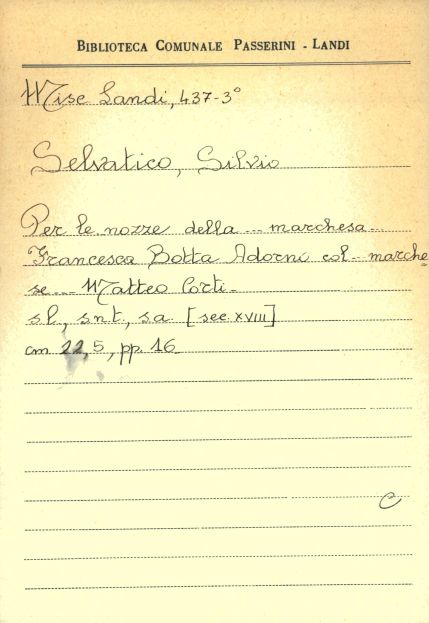 BIBLIOTECA COMUNALE PASSERINI - LANDI
Misc Landi, 437-3°
Selvatico, Silvio
Per le nozze della ... marchesa ...
Francesca Botta Adorno col ... marche
se ... Matteo Corti.
s.l., s.n.t., s.a. [sec. XVIII]
cm 22,5, pp. 16
C